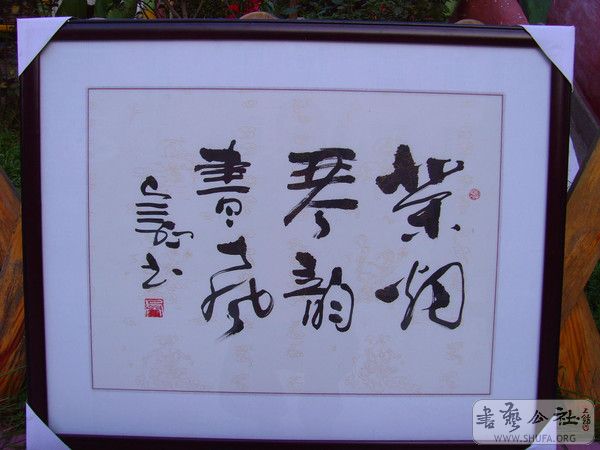 茶烟
琴韵
書風
書藝公社
WWW.SHUFA.ORG